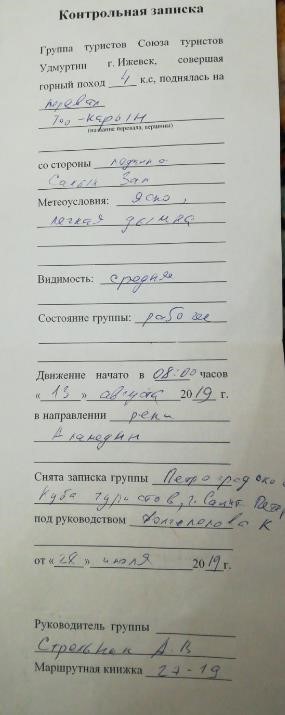 Контрольная записка
Группа туристов Союза туристов
Удмуртии г. Ижевск, совершая
горный поход 4 к.с, поднялась на
перевал
Тоо-Карын
(название перевала, вершины)
со стороны ледника
Салык Зап
Метеоусловия: ясно,
легкая дымка
Видимость: средняя
Состояние группы: рабочее
Движение начато в 08:00 часов
« 13 » августа 2019 г.
в направлении реки
Аламедин
Снята записка группы Петроградского
Клуба туристов, г. Санкт-Петер
под руководством К
от «28» июля 2019 г.
Руководитель группы
Стрельник А.В
Маршрутная книжка 27-19